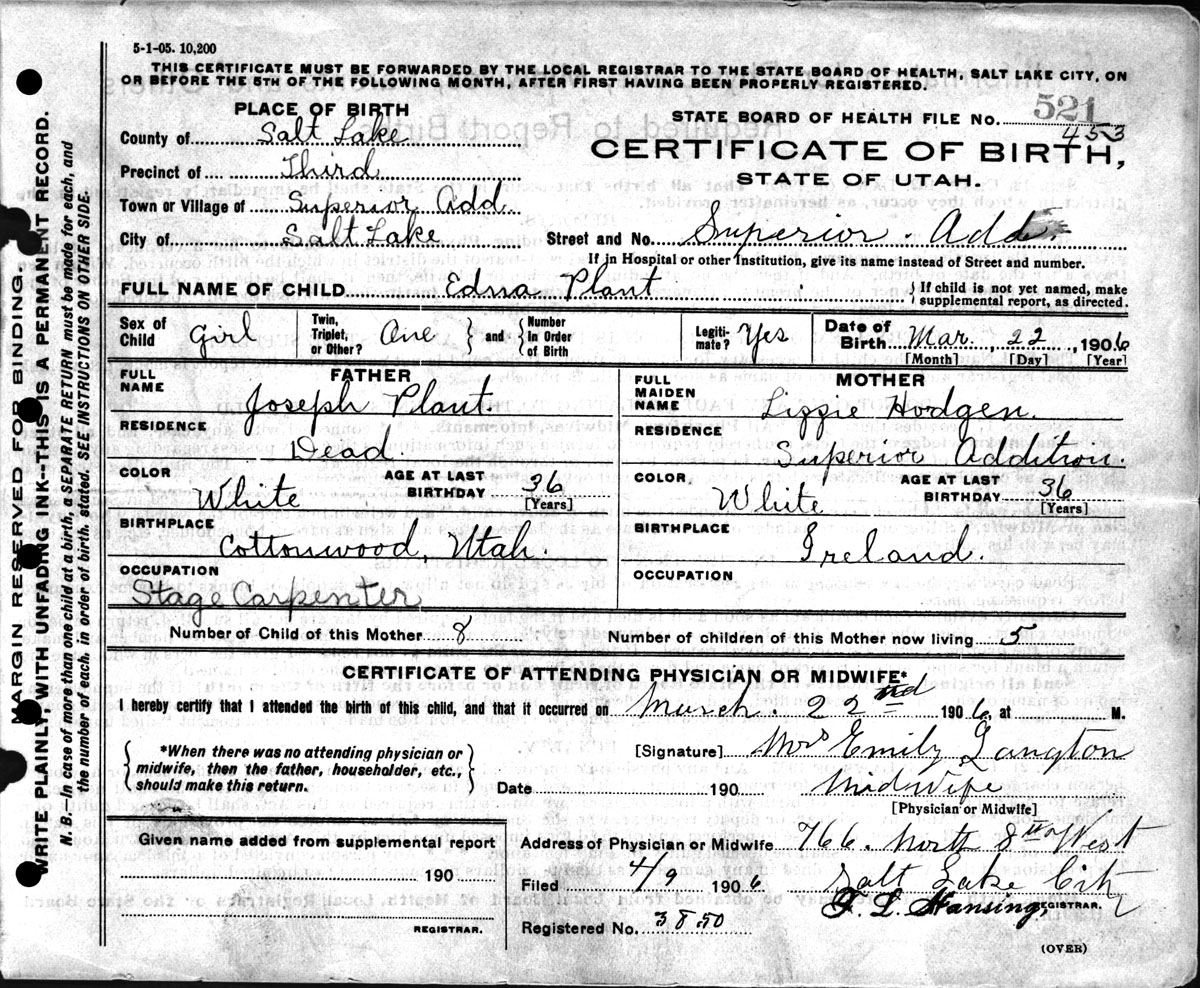 5-1-05. 10,200
THIS CERTIFICATE MUST BE FORWARDED BY THE LOCAL REGISTRAR TO THE STATE BOARD OF HEALTH, SALT LAKE CITY, ON
OR BEFORE THE 5TH OF THE FOLLOWING MONTH, AFTER FIRST HAVING BEEN PROPERLY REGISTERED.
MARGIN RESERVED FOR BINDING.
WRITE PLAINLY, WITH UNFADING INK--THIS IS A PERMANENT RECORD.
N. B.—In case of more than one child at a birth, a SEPARATE RETURN must be made for each, and
the number of each, in order of birth, stated. SEE INSTRUCTIONS ON OTHER SIDE.
PLACE OF BIRTH
County of Salt Lake
Precinct of Third
Town or Village of Superior Add.
City of Salt Lake
STATE BOARD OF HEALTH FILE NO. 521
453
CERTIFICATE OF BIRTH,
STATE OF UTAH.
Street and No. Superior Add.
If in Hospital or other Institution, give its name instead of Street and number.
FULL NAME OF CHILD Edna Plant
If child is not yet named, make
supplemental report, as directed.
Sex of Child Girl
Twin, Triplet, or Other? One and Number in Order of Birth
Legitimate? Yes
Date of Birth Mar, 22, 1906
[Month] [Day] [Year]
FATHER
FULL NAME Joseph Plant.
RESIDENCE Dead.
COLOR White
AGE AT LAST BIRTHDAY 36 [Years]
BIRTHPLACE Cottonwood, Utah.
OCCUPATION Stage Carpenter
MOTHER
FULL MAIDEN NAME Lizzie Hodgen.
RESIDENCE Superior Addition.
COLOR White
AGE AT LAST BIRTHDAY 36 [Years]
BIRTHPLACE Ireland.
OCCUPATION
Number of Child of this Mother 8 Number of children of this Mother now living 5
CERTIFICATE OF ATTENDING PHYSICIAN OR MIDWIFE*
I hereby certify that I attended the birth of this child, and that it occurred on March. 22nd 1906, at M.
*When there was no attending physician or
midwife, then the father, householder, etc.,
should make this return.
[Signature] Mrs Emily Langton
Date 190 MidWife
[Physician or Midwife]
Given name added from supplemental report
190
REGISTRAR.
Address of Physician or Midwife 766. North 8th West
Filed 4/9 1906 Salt Lake City
Registered No. 3850
REGISTRAR.
(OVER)